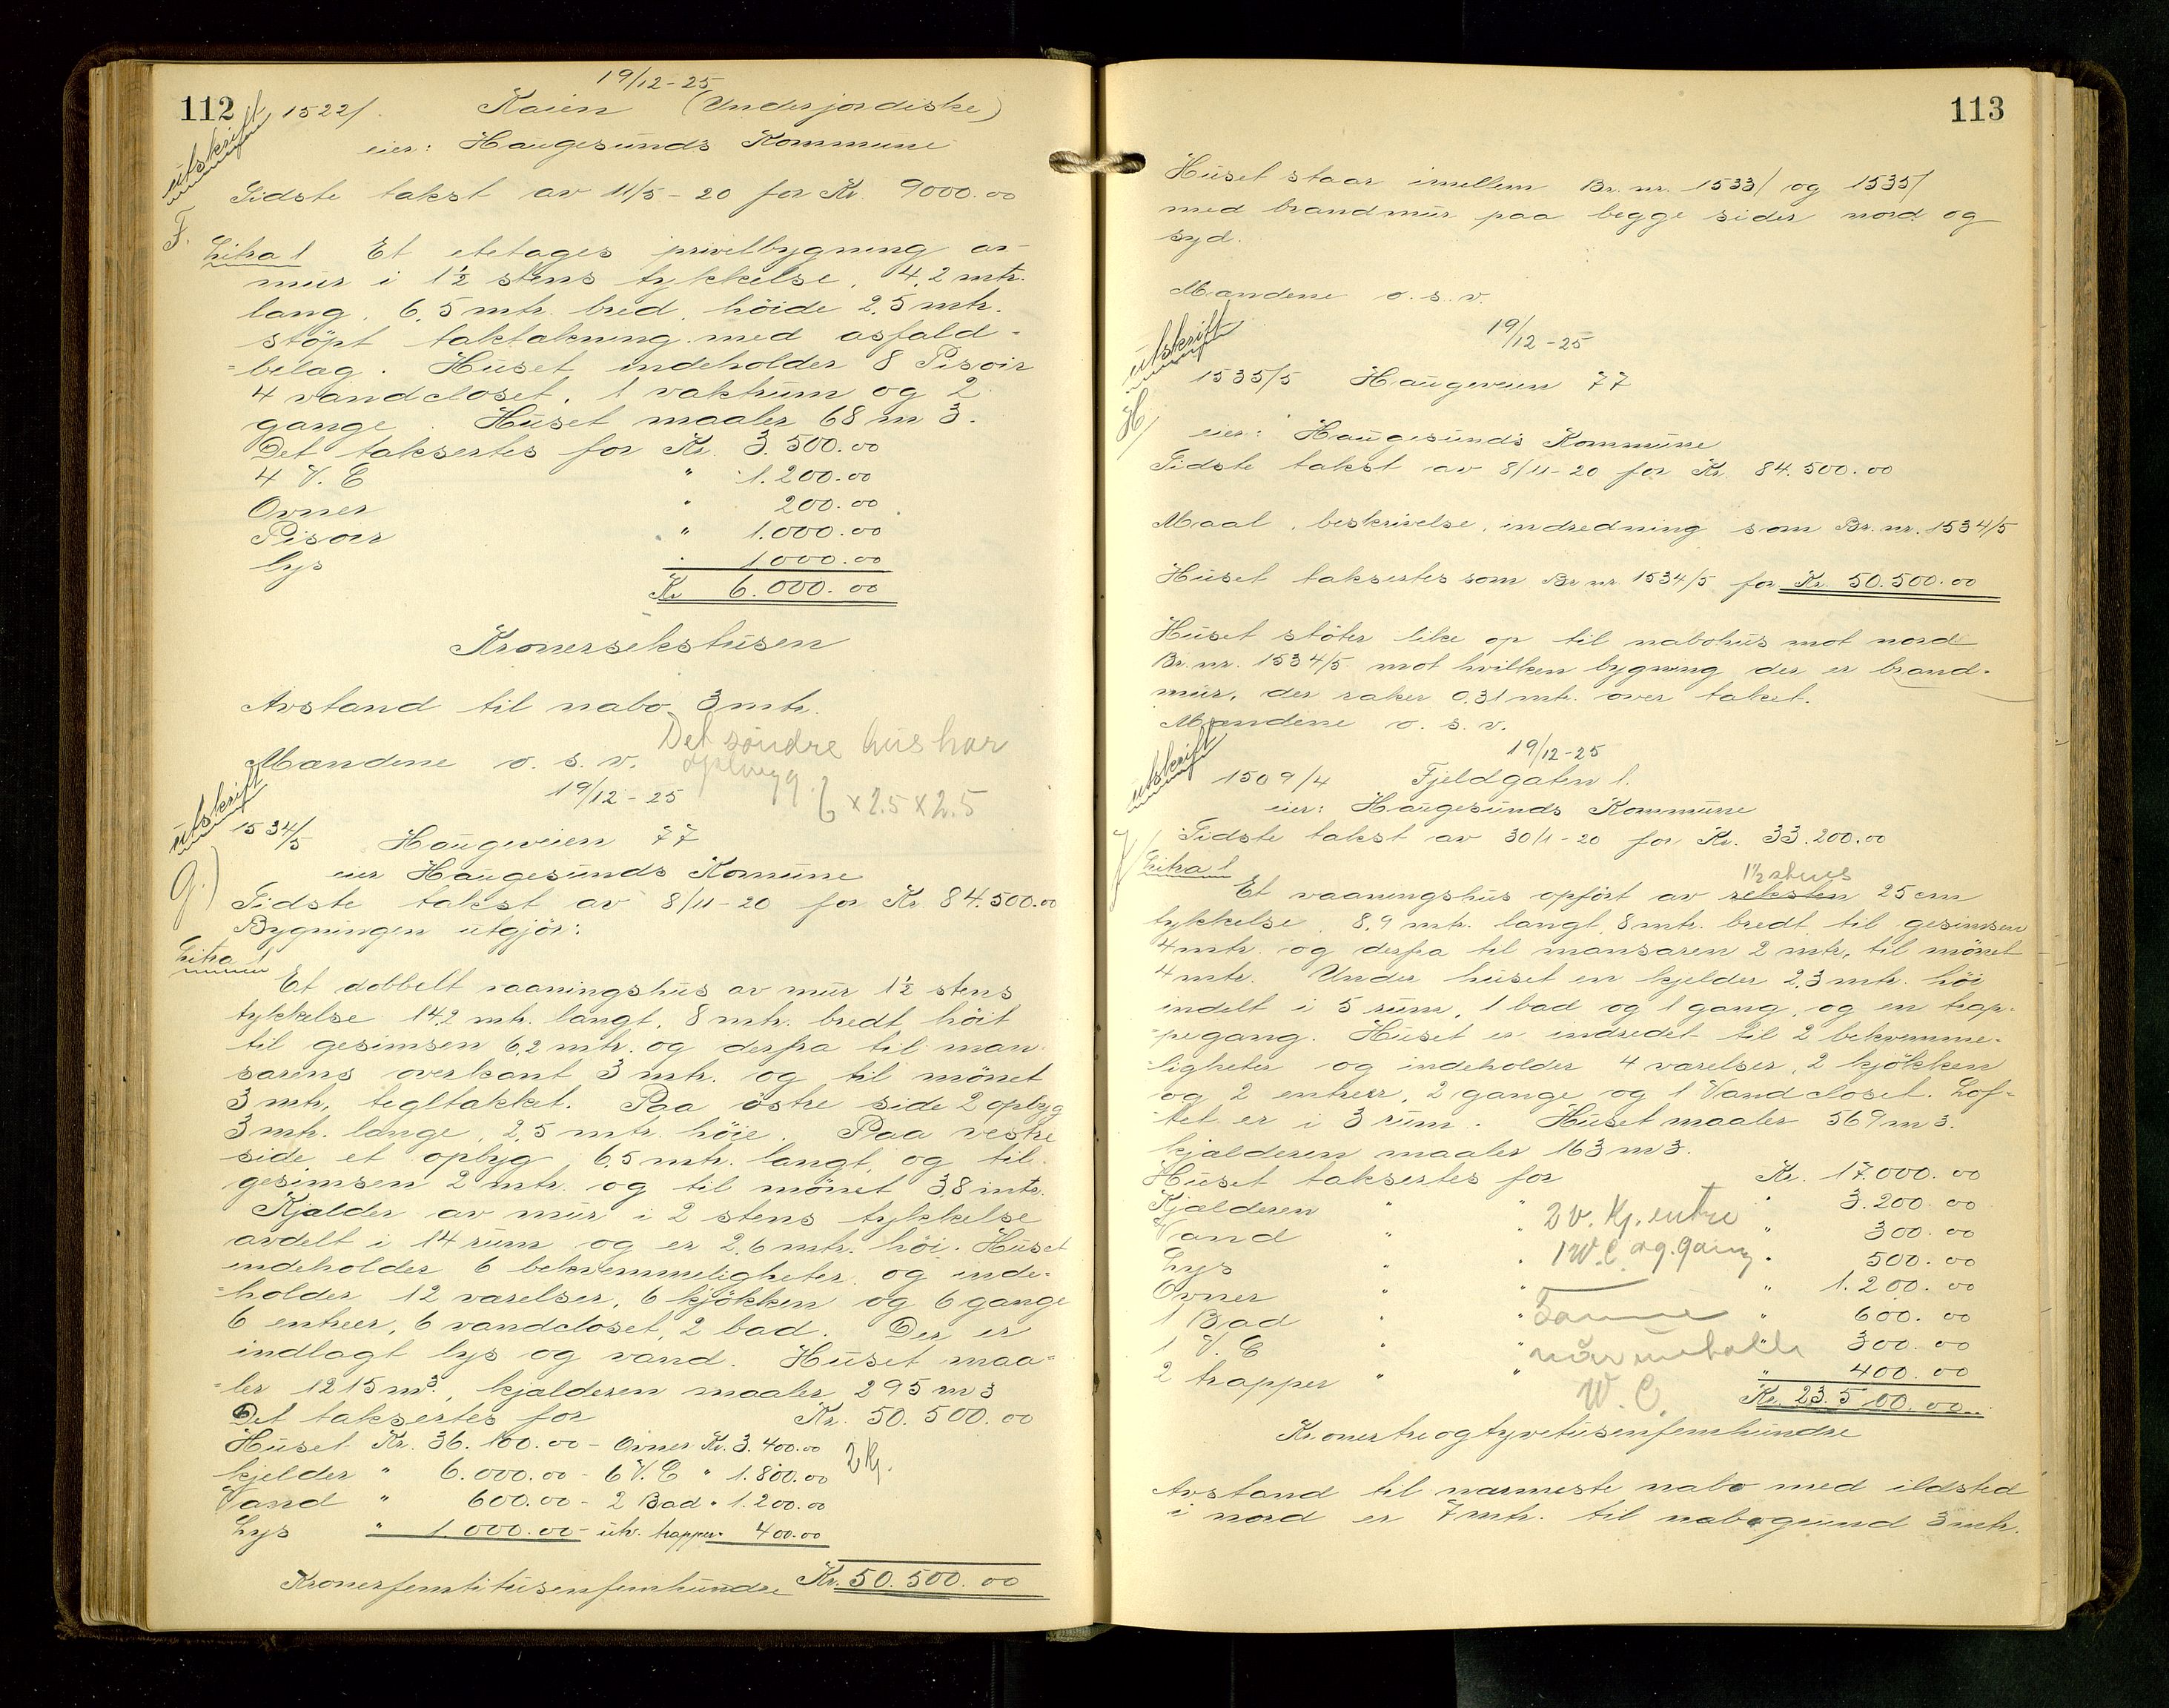 112
19/12-25
1522/. Kaien (Underjordiske)
utskrift
eier: Haugesunds Kommune
Sidste takst av 11/5-20 for Kr. 9000.00
F.
Litra 1 Et etetages privetbygning av
mur i 1½ stens tykkelse, 4,2 mtr.
lang, 6,5 mtr. bred, höide 2,5 mtr.
stöpt taktakning med asfald-
=belag. Huset indeholder 8 Pisoir
4 vandcloset, 1 vaktrum og 2
gange. Huset maaler 68 m3.
Det taksertes for Kr. 3.500.00
4 V.C " 1.200.00
Ovner " 200.00
Pisoir " 1.000.00
Lys " 1000.00
Kr 6.000.00
Kronersekstusen
Avstand til nabo 3 mtr.
Mændene o. s. v. Det söndre hus har
opbygg 6 x 2.5 x 2.5
19/12-25
utskrift
1534/5 Haugeveien 77
eier Haugesunds Komune
G.) Sidste takst av 8/11-20 for Kr 84.500.00
Bygningen utgjör:
Litra 1
Et dobbelt vaaningshus av mur 1½ stens
tykkelse 14,2 mtr. langt, 8 mtr. bredt, höit
til gesimsen 6,2 mtr. og derfra til man-
sarens overkant 3 mtr. og til mönet
3 mtr, tegltakket. Paa östre side 2 opbyg
3 mtr. lange, 2,5 mtr. höie. Paa vestre
side et opbyg 6,5 mtr. langt, og til
gesimsen 2 mtr. og til mönet 3,8 mtr.
Kjælder av mur i 2 stens tykkelse
avdelt i 14 rum og er 2,6 mtr. höi. Huset
indeholder 6 bekvemmeligheter og inde=
=holder 12 værelser, 6 kjökken og 6 gange
6 entreer, 6 vandcloset, 2 bad. Der er
indlagt lys og vand. Huset maa=
=ler 1215 m3, kjælderen maaler 295 m3
Det taksertes for Kr. 50.500.00
Huset Kr. 36.100.00 - Ovner Kr. 3.400.00
kjelder " 6.000.00 - 6 V.C " 1.800.00 2 Kj.
Vand " 600.00 - 2 Bad " 1.200.00
Lys " 1.000.00 - utv. trapper " 400.00
Kronerfemtitusenfemhundre Kr. 50.500.00
113
Huset staar imellem Br. nr. 1533/ og 1535/
med brandmur paa begge sider nord og
syd.
Mændene o. s. v.
19/12-25
utskrift
1535/5 Haugeveien 77
H/
eier: Haugesunds Kommune
Sidste takst av 8/11-20 for Kr. 84.500.00
Maal, beskrivelse, indredning som Br. nr. 1534/5
Huset taksertes som Br nr 1534/5 for Kr. 50.500.00
Huset stöter like op til nabohus mot nord
Br. nr. 1534/5 mot hvilken bygning der er brand-
mur, der raker 0,31 mtr. over taket.
Mændene o. s. v.
19/12-25
utskrift
1509/4 Fjeldgaten 1.
eier: Haugesunds Kommune
Sidste takst av 30/1-20 for Kr. 33.200.00
Litra 1
1½ stens
Et vaaningshus opfört av seksten 25 cm
tykkelse, 8,9 mtr. langt, 8 mtr. bredt, til gesimsen
4 mtr. og derfra til mansaren 2 mtr, til mönet
4 mtr. Under huset en kjelder 2,3 mtr. höi
indelt i 5 rum, 1 bad og 1 gang, og en trap-
-pegang. Huset er indredet til 2 bekvemme-
-ligheter og indeholder 4 værelser, 2 kjökken
og 2 entreer, 2 gange og 1 Vandcloset. Lof=
tet er i 3 rum. Huset maaler 569 m3.
kjælderen maaler 163 m3.
Huset taksertes for Kr. 17.000.00
Kjælderen " " " 3.200.00
2 v. Kj. entre
Vand " " " 300.00
1 W.C. og gang
Lys " " " 500.00
Ovner " " " 1.200.00
1 Bad " " " 600.00
1 V.C " " " 300.00
2 trapper " " " 400.00
W.C.
Kr. 23.500.00
Kronertreogtyvetusenfemhundre
Avstand til nærmeste nabo med ildsted
i nord er 7 mtr. til nabogrund 3 mtr.